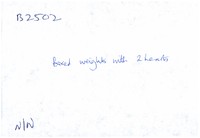 B2502
Boxed weights with 2 hearts
N/N